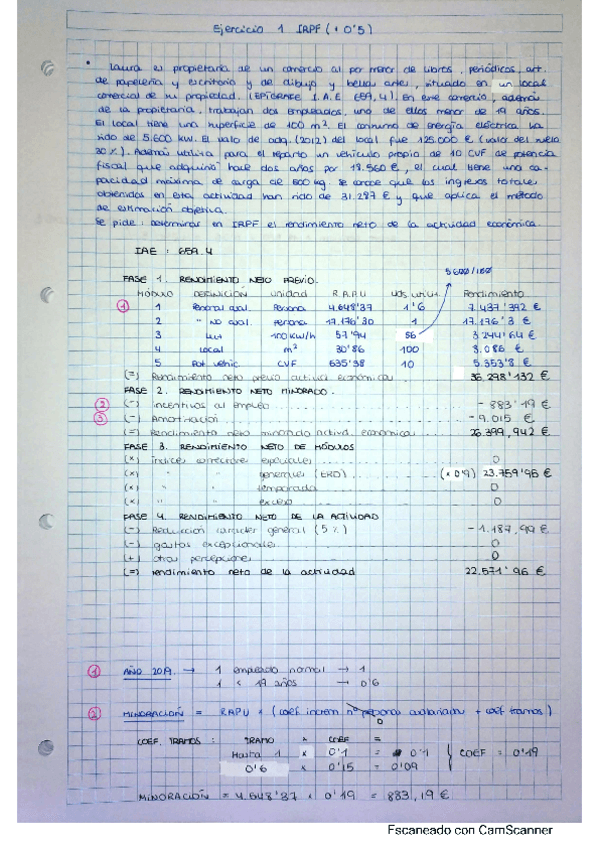 Ejercicio 1 IRPF (+0'5)
• Laura es propietaria de un comercio al por menor de libros, periódicos, art.
de papelería y escritorio y de dibujo y bellas artes, situado en un local
comercial de su propiedad. (Epígrafe I.A.E 659,4). En este comercio, además
de la propietaria, trabajan dos empleados, uno de ellos menor de 19 años.
El local tiene una superficie de 100 m². El consumo de energía eléctrica ha
sido de 5.600 kw. El valo de adq. (2012) del local fue 125.000 € (valor del suelo
30%). Además utiliza para el reparto un vehículo propio de 10 CVF de potencia
fiscal que adquirió hace dos años por 18.560 €, el cual tiene una ca-
pacidad máxima de carga de 600 kg. Se conoce que los ingresos totales
obtenidos en esta actividad han sido de 31.287 € y que aplica el método
de estimación objetiva.
Se pide: determinar en IRPF el rendimiento neto de la actividad económica.
IAE : 659.4
5600/100
FASE 1. RENDIMIENTO NETO PREVIO.
MÓDULO DEFINICIÓN Unidad R.A.P.U Uds. utiliz. Rendimiento
1 1 Personal asal. Persona 4.648'37 1'6 7.437'392 €
2 " NO asal. Persona 17.176'30 1 17.176'3 €
3 100 kw/h 57'94 56 3244'64 €
4 Local m² 30'86 100 3.086 €
5 Pot. vehic. CVF 535'38 10 5.353'8 €
(=) Rendimiento neto previo activ. económica 36.298'132 €
FASE 2. RENDIMIENTO NETO MINORADO.
2 (-) incentivos al empleo - 883'19 €
3 (-) Amortización - 9.015 €
(=) Rendimiento neto minorado activ. económica 26.399,942 €
FASE 3. RENDIMIENTO NETO DE MÓDULOS
(x) índices correctores especiales 0
(x) " " generales (ERD) (x 0'9) 23.759'95 €
(x) " " temporada 0
(x) " " exceso 0
FASE 4. RENDIMIENTO NETO DE LA ACTIVIDAD
(-) Reducción carácter general (5%) - 1.187,99 €
(-) gastos excepcionales 0
(+) otras percepciones 0
(=) rendimiento neto de la actividad 22.571'96 €
1 AÑO 2019. → 1 empleado normal → 1
1 < 19 años → 0'6
2 MINORACIÓN = RAPU x (coef. increm nº personas asalariadas + coef tramos)
0
COEF. TRAMOS : TRAMO x COEF =
Hasta 1 x 0'1 = 0'1 } COEF = 0'19
0'6 x 0'15 = 0'09
MINORACIÓN = 4.648'37 x 0'19 = 883,19 €
Escaneado con CamScanner